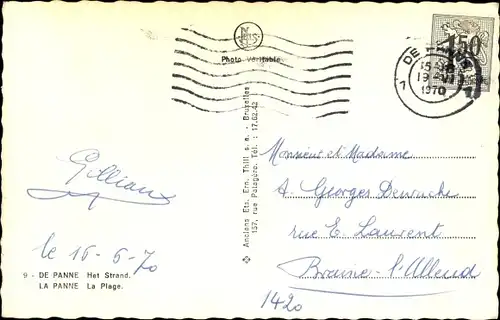 Photo Véritable
DE PANNE
1970
1,50
Anciens Ets. Ern. Thill s.a. - Bruxelles
157, rue Potagère. Tél. : 17.62.42
Monsieur et Madame
A. Georges
rue E. Laurent
Braine-l'Alleud
1420
Gillian
le 16-6-70
9 - DE PANNE Het Strand.
LA PANNE La Plage.